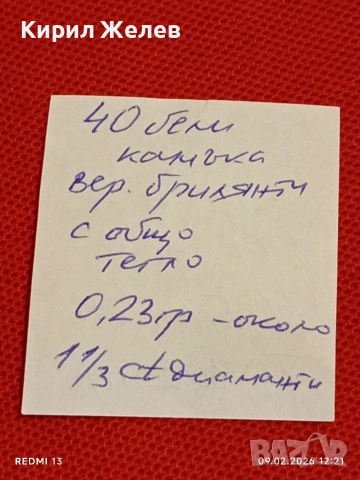 Кирил Желев
40 бели
камъка
вер. брилянти
с общо
тегло
0,23гр - около
1 1/3 ct диаманти
REDMI 13
09.02.2026 12:21
BAZAR